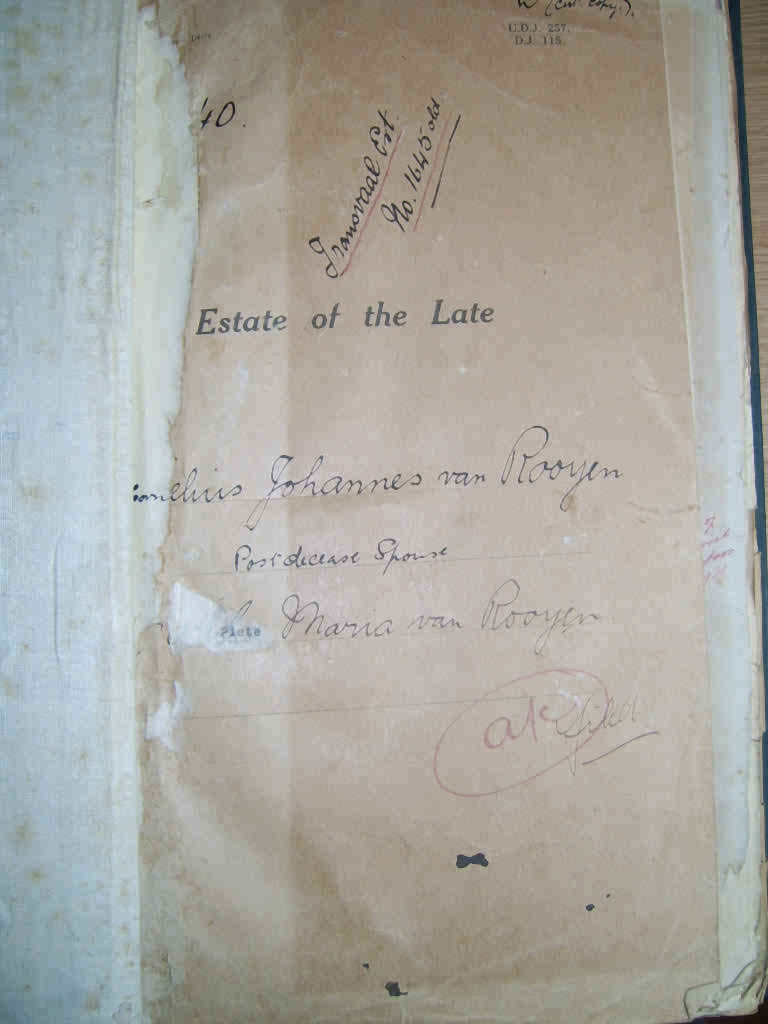 (Cert. Copy.).
U.D.J. 257.
D.J. 115.
40.
Transvaal Est.
No. 1645 old
Estate of the Late
Cornelius Johannes van Rooyen
Postdecease Spouse
Plete Maria van Rooyen
Filed